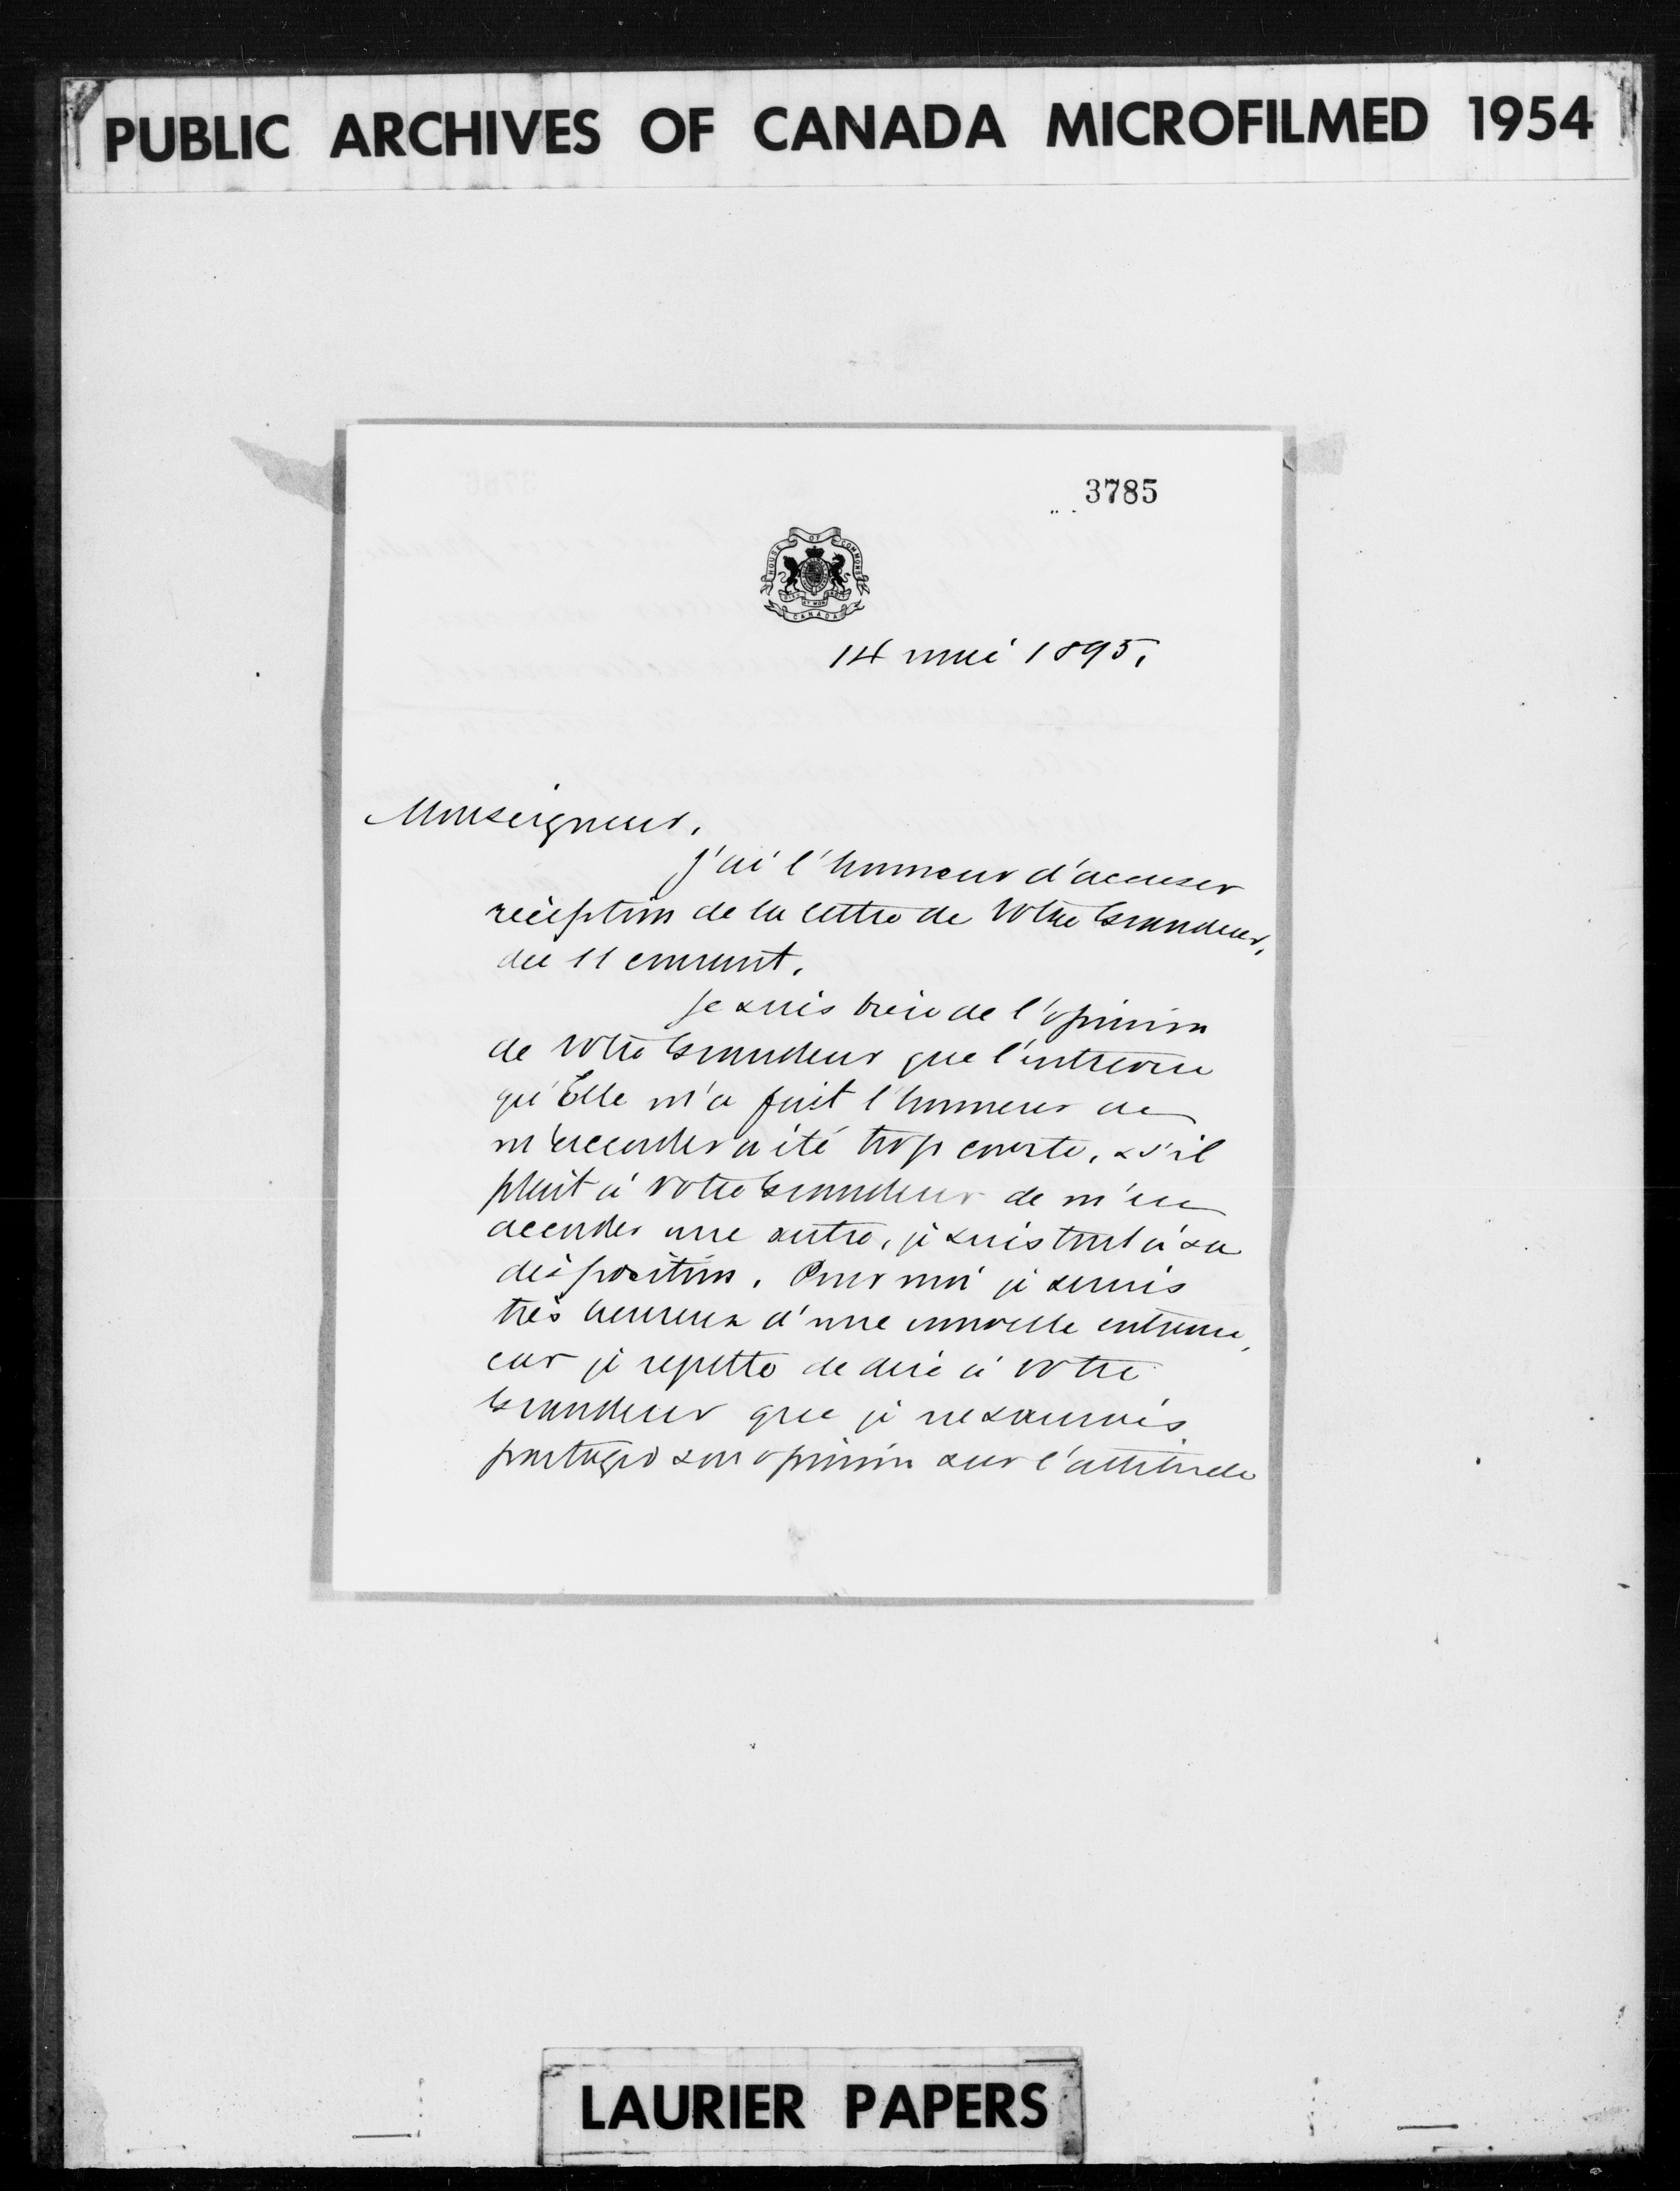 PUBLIC ARCHIVES OF CANADA MICROFILMED 1954
3785
HOUSE OF COMMONS
CANADA
14 mai 1895.
Monseigneur,
J'ai l'honneur d'accuser
réception de la lettre de Votre Grandeur,
du 11 courant.
Je suis bien de l'opinion
de Votre Grandeur que l'entrevue
qu'Elle m'a fait l'honneur de
m'accorder a été trop courte, & s'il
plait à Votre Grandeur de m'en
accorder une autre, je suis tout à sa
disposition. Pour moi je serais
très heureux d'une nouvelle entrevue,
car je regrette de dire à Votre
Grandeur que je ne saurais
partager son opinion sur l'attitude
LAURIER PAPERS